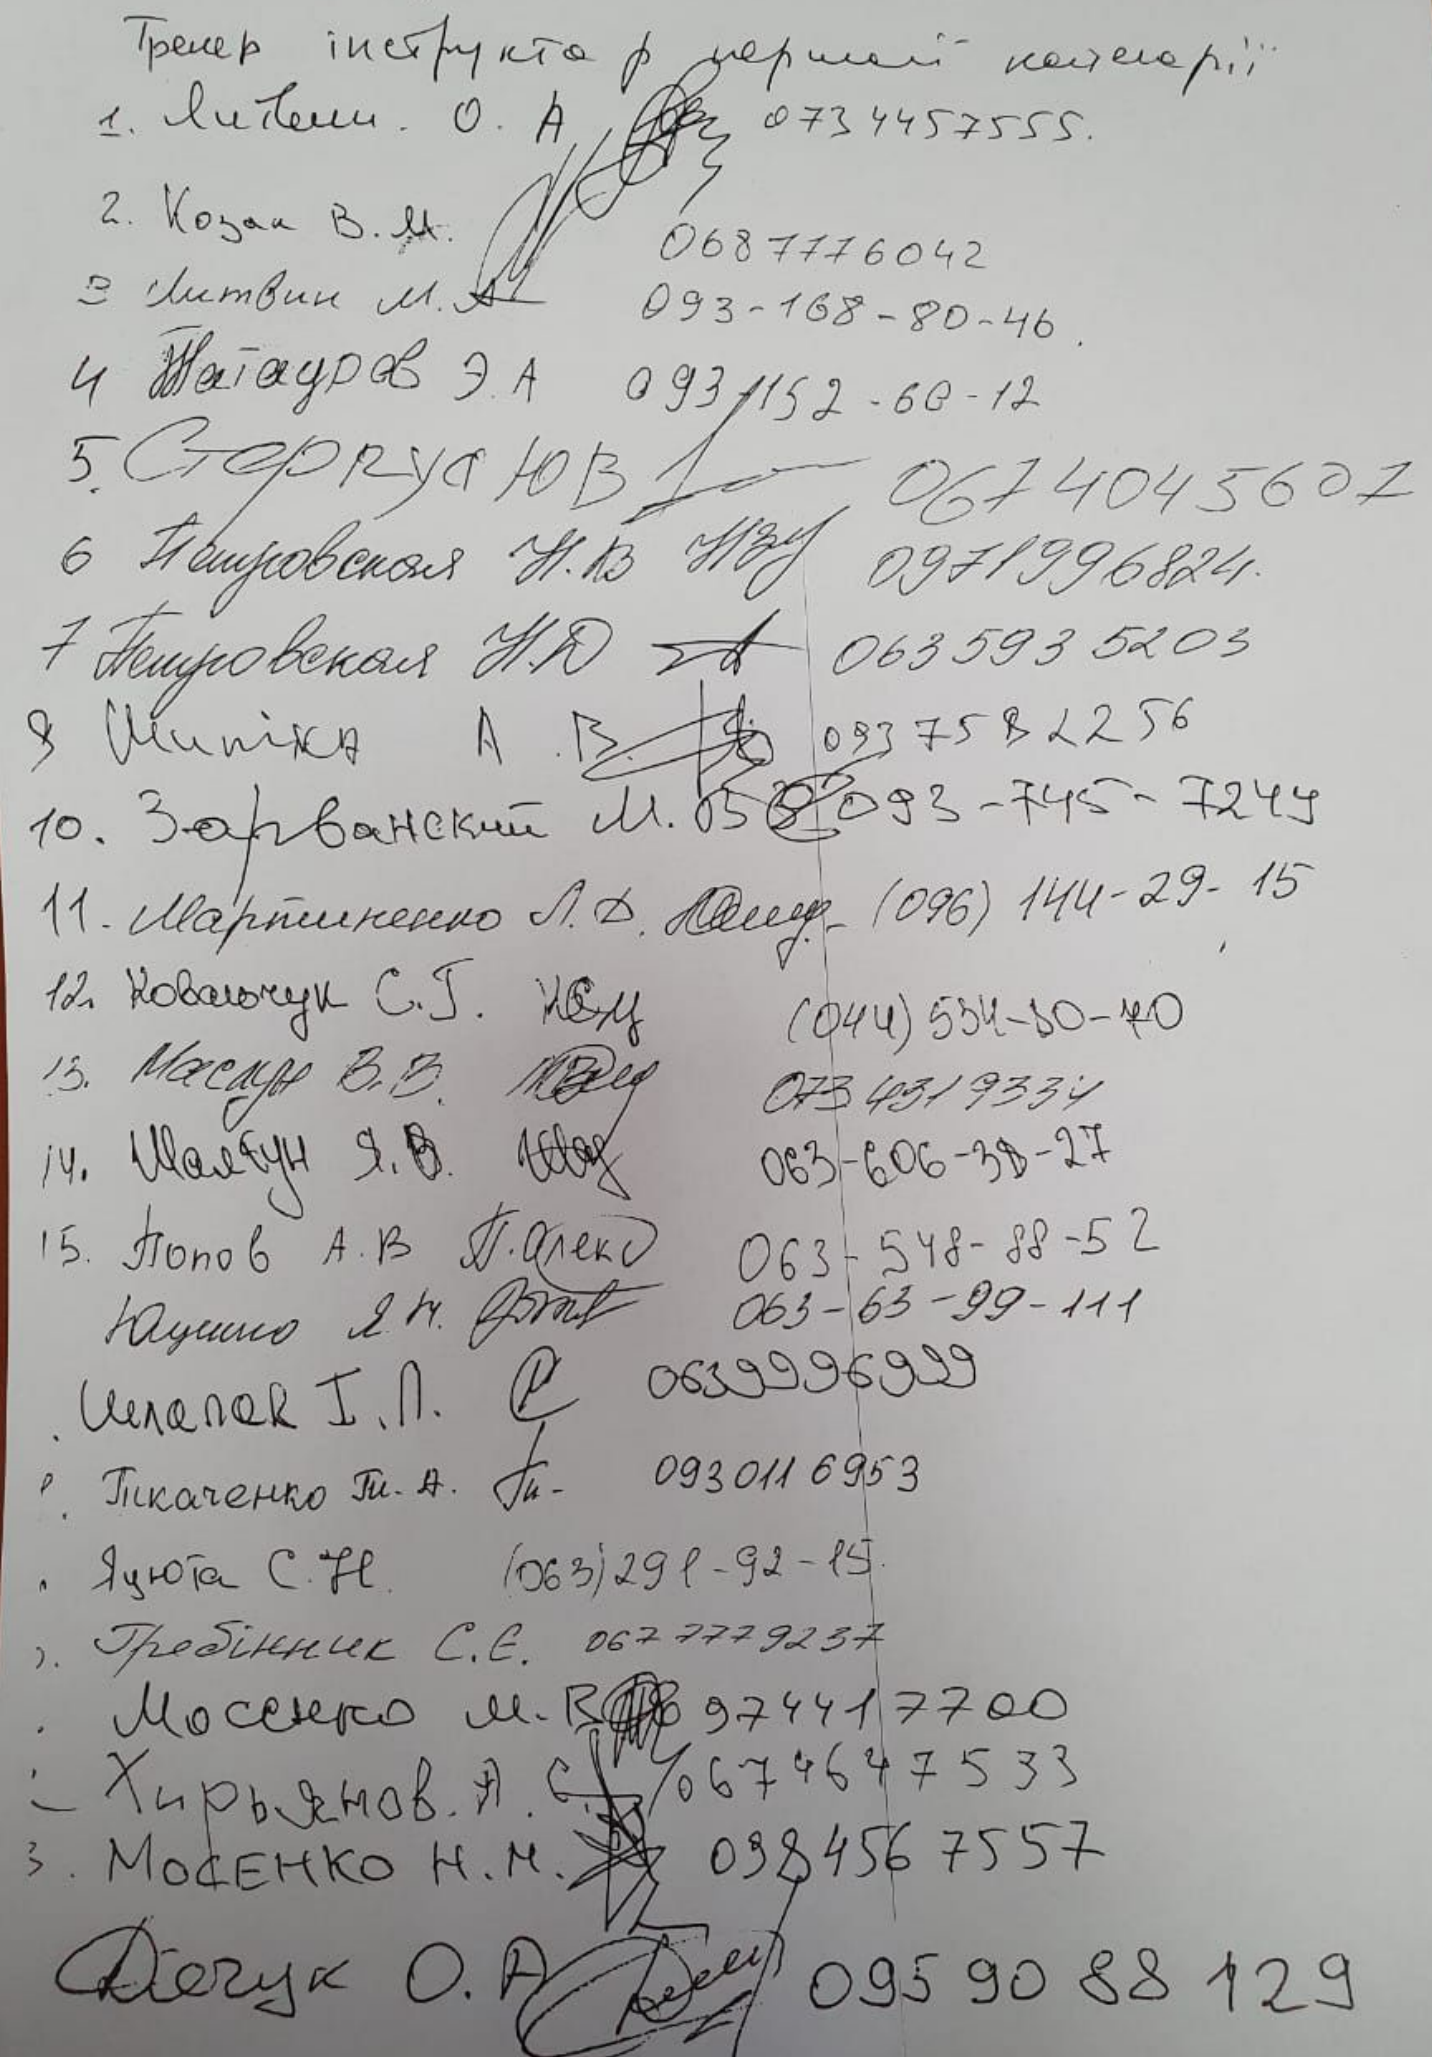 Тренер інструктор першої категорії
1. Литвин. О. А 0734457555.
2. Козак В.М. 0687776042
3 Литвин М.А 093-168-80-46
4 Татауров Э.А 093 1152-60-12
5. Стормус ЮВ 0674045607
6 Петровская Н.В 0971996824.
7 Петровская Н.Д 063 593 5203
8 Шипіка А.В. 093 75 8 2256
10. Зарванский М.В 093-745-7244
11. Мартиненко Л.Д. (096) 144-29-15
12. Ковальчук С.Г. (044) 534-80-70
13. Маслун В.В. 073 4319334
14. Шалгун Я.В. 063-606-38-27
15. Попов А.В П.Алекс 063-548-88-52
Ющенко Я.Н. 063-63-99-111
Шлапак І.П. 0639996999
Ткаченко Т. А. 093011 6953
Яцюта С.Н. (063) 291-92-15.
Гребінник С.Є. 067 7779237
Мосенко М.В 974417700
Хирьянов. А.С. 0674647533
3. Мосенко Н.М. 098456 7557
Дячук О.А 095 90 88 129